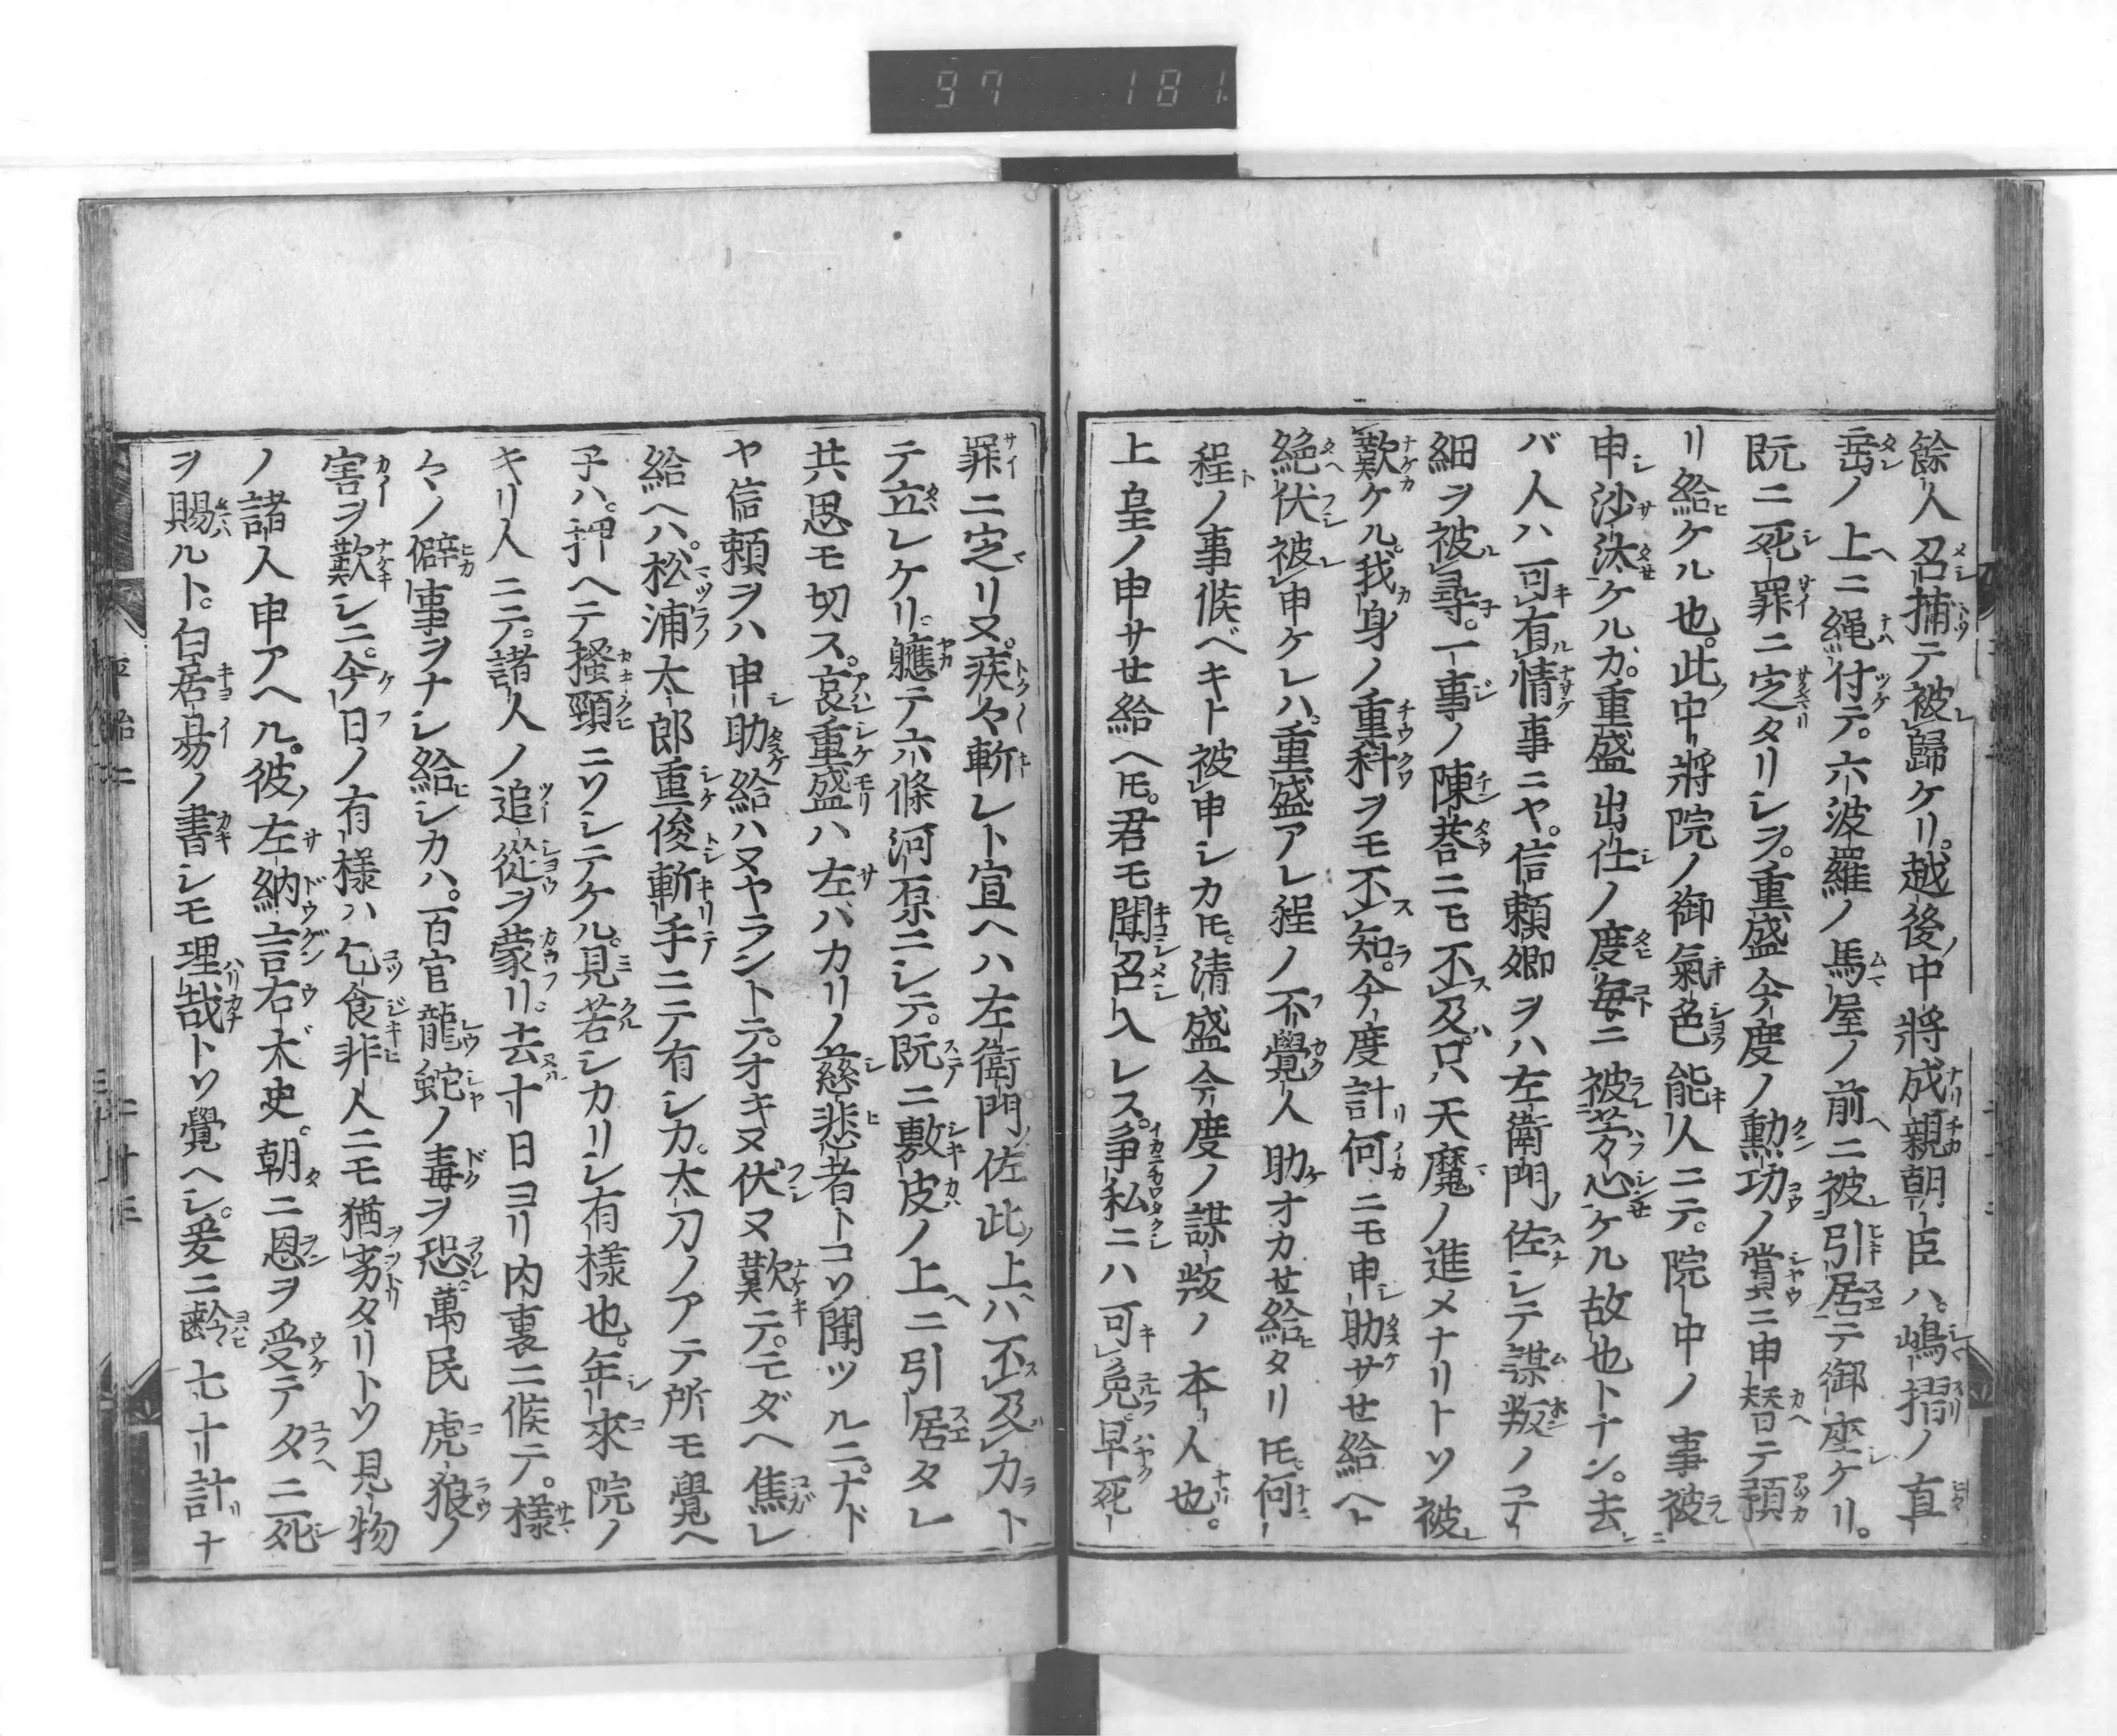 97 181
餘人召捕テ被歸ケリ。越後中將成親朝臣ハ。嶋摺ノ直
垂ノ上ニ繩付テ。六波羅ノ馬屋ノ前ニ被引居テ御座ケリ。
既ニ死罪ニ定タリシヲ。重盛今度ノ勲功ノ賞ニ申替テ預
リ給ケル也。此中將院ノ御氣色能人ニテ。院中ノ事被
申沙汰ケルカ。重盛出仕ノ度毎ニ被芳心ケル故也トナン。去
バ人ハ可有情事ニヤ。信頼卿ヲハ左衛門佐シテ謀叛ノ子
細ヲ被尋。一事ノ陳荅ニモ不及。只天魔ノ進メナリトソ被
歎ケル。我身ノ重科ヲモ不知。今度計何ニモ申助サセ給ヘト
絶伏被申ケレハ。重盛アレ程ノ不覺人助オカセ給タリ𪜈何
程ノ事候ベキト被申シカ𪜈。清盛今度ノ謀叛ノ本人也。
上皇ノ申サセ給ヘ𪜈。君モ聞召入レス。爭私ニハ可免。早死
罪ニ定リヌ。疾々斬レト宣ヘハ左衛門佐此上ハ不及力ト
テ立レケリ。軈テ六條河原ニシテ。既ニ敷皮ノ上ニ引居タレ
共思モ切ス。哀重盛ハ左バカリノ慈悲者トコソ聞ツルニ。ナド
ヤ信頼ヲハ申助給ハヌヤラントテ。オキヌ伏ヌ歎テ。モダヘ焦レ
給ヘハ。松浦太郎重俊斬手ニテ有シカ。太刀ノアテ所モ覺ヘ
子ハ。押ヘテ搔頸ニソシテケル。見苦シカリシ有樣也。年來院ノ
キリ人ニテ。諸人ノ追從ヲ蒙リ。去十日ヨリ内裏ニ候テ。樣
々ノ僻事ヲナシ給シカハ。百官龍蛇ノ毒ヲ恐萬民虎狼ノ
害ヲ歎シニ。今日ノ有樣ハ乞食非人ニモ猶劣タリトソ見物
ノ諸人申アヘル。彼左納言右大史。朝ニ恩ヲ受テタニ死
ヲ賜ルト。白居昜ノ書シモ理哉トソ覺ヘシ。爰ニ齡七十計ナ
平治二
二十三